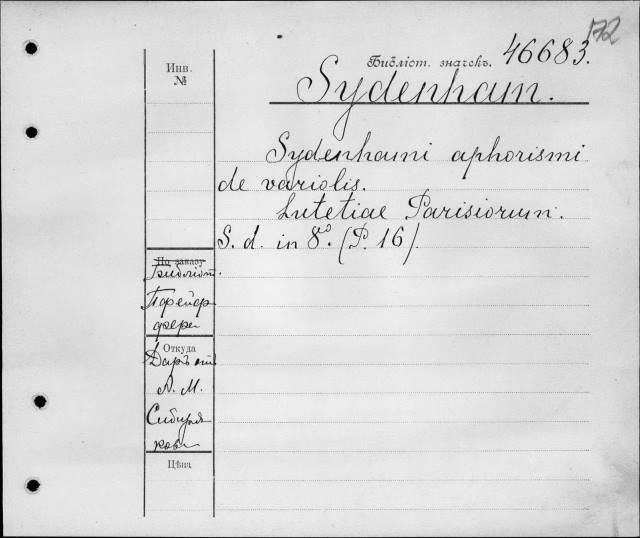 172
Библіот. значекъ. 46683.
Инв.
№
Sydenham.
Sydenhami aphorismi
de variolis.
Lutetiae Parisiorum.
S. d. in 8º. (P. 16).
По заказу
Библіот.
Откуда
Даръ
А. М.
Сибиря
кова
Цѣна